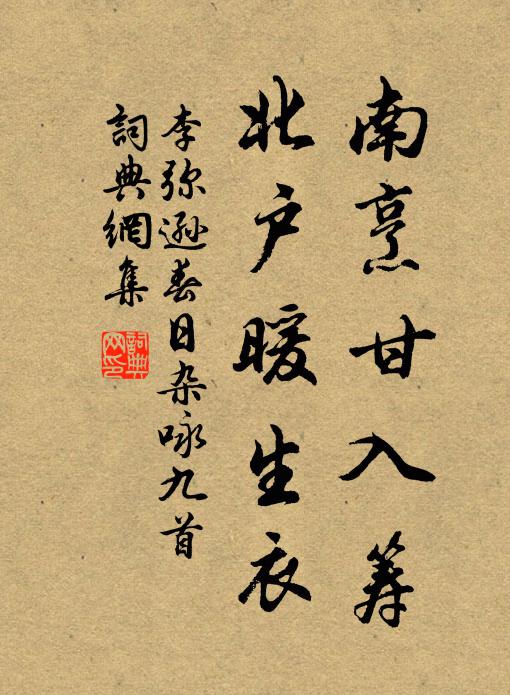 南烹甘入筹
北户暖生衣
李弥遜春日杂咏九首
詞典網集
詞典网印